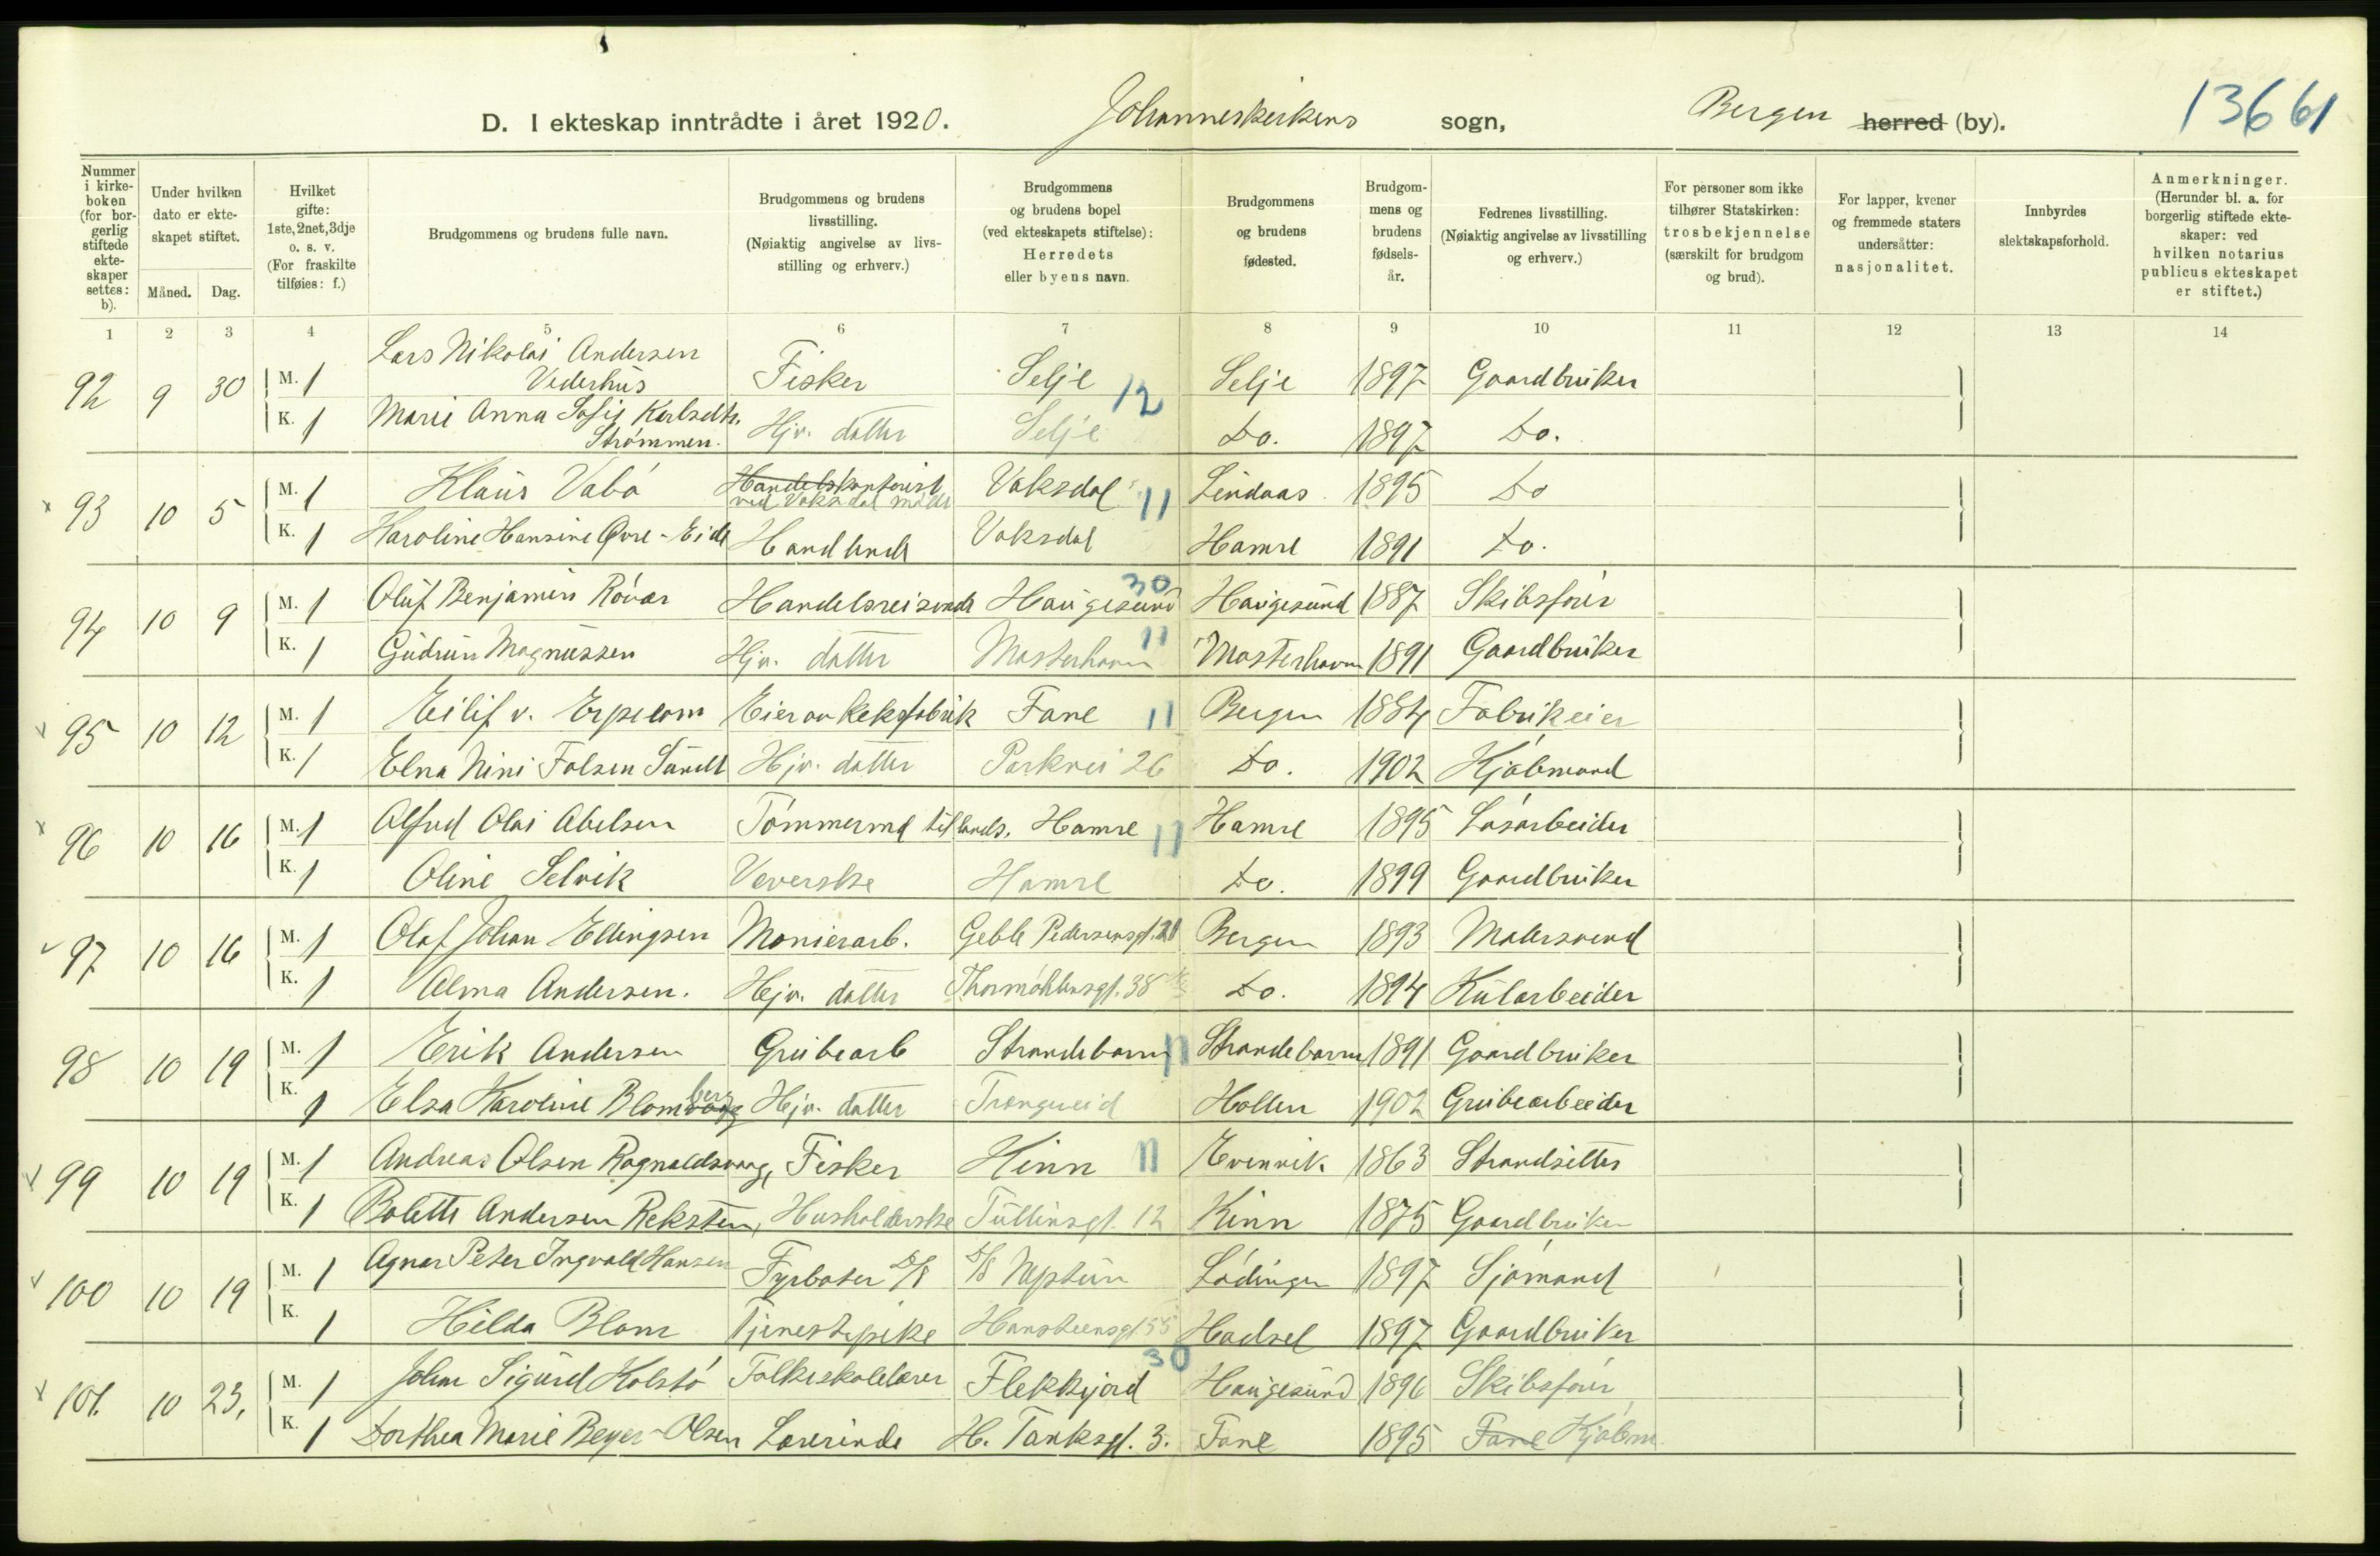 D. I ekteskap inntrådte i året 1920. Johanneskirkens sogn, Bergen herred (by). 13661
Nummer i kirkeboken (for borgerlig stiftede ekteskaper settes: b). Under hvilken dato er ekteskapet stiftet. Måned. Dag. Hvilket gifte: 1ste, 2net, 3dje o. s. v. (For fraskilte tilføies: f.) Brudgommens og brudens fulle navn. Brudgommens og brudens livsstilling. (Nøiaktig angivelse av livsstilling og erhverv.) Brudgommens og brudens bopel (ved ekteskapets stiftelse): Herredets eller byens navn. Brudgommens og brudens fødested. Brudgommens og brudens fødselsår. Fedrenes livsstilling. (Nøiaktig angivelse av livsstilling og erhverv.) For personer som ikke tilhører Statskirken: trosbekjennelse (særskilt for brudgom og brud). For lapper, kvener og fremmede staters undersåtter: nasjonalitet. Innbyrdes slektskapsforhold. Anmerkninger. (Herunder bl. a. for borgerlig stiftede ekteskaper: ved hvilken notarius publicus ekteskapet er stiftet.)
1 2 3 4 5 6 7 8 9 10 11 12 13 14
92 9 30 M. 1 Lars Nikolai Andersen Vederhus Fisker Selje 12 Selje 1897 Gaardbruker
K. 1 Marie Anna Sofie Karlsdtr. Strømmen. Hjv. datter Selje Do. 1897 Do.
93 10 5 M. 1 Klaus Vabø Handelskontorist ved Vaksdal mølle Vaksdal 11 Lindaas 1895 Do
K. 1 Karoline Hansine Øvre-Eide Handlende Vaksdal Hamre 1891 Do.
94 10 9 M. 1 Oluf Benjamin Røvær Handelsreisende Haugesund 30 Haugesund 1887 Skibsfører
K. 1 Gudrun Magnussen Hjv. datter Mosterhavn 11 Mosterhavn 1891 Gaardbruker
95 10 12 M. 1 Eilif v. Erpecom Eier av Keksfabrik Fane 11 Bergen 1884 Fabrikeier
K. 1 Elna Nini Falsen Sundt Hjv. datter Parkvei 26 Do. 1902 Kjøbmand
96 10 16 M. 1 Alfred Olai Abelsen Tømmermd tillands. Hamre 11 Hamre 1895 Løsarbeider
K. 1 Oline Selvik Veverske Hamre Do. 1899 Gaardbruker
97 10 16 M. 1 Olaf Johan Ellingsen Monierarb. Geble Pedersensgt. 21 Bergen 1893 Malersvend
K. 1 Alma Andersen. Hjv. datter Thormøhlensgt. 38 Do. 1894 Kularbeider
98 10 19 M. 1 Erik Andersen Grubearb Strandebarm 11 Strandebarm 1891 Gaardbruker
K. 1 Elsa Karoline Blomberg Hjv. datter Trengereid Hollen 1902 Grubearbeider
99 10 19 M. 1 Andreas Olsen Ragnaldsvaag, Fisker Kinn 11 Evenvik 1863 Strandsitter
K. 1 Bolette Andersen Reksten, Husholderske Tullinsgt. 12 Kinn 1875 Gaardbruker
100 10 19 M. 1 Agnar Peter Ingvald Hansen Fyrbøter D/S D/S Neptun Lødingen 1897 Sjømand
K. 1 Hilda Blom Tjenestepike Hansteensgt 55 Hadsel 1897 Gaardbruker
101. 10 23, M. 1 John Sigurd Kolstø Folkeskolelærer Flekkjord 30 Haugesund 1896 Skibsfører
K. 1 Dorthea Marie Beyer-Olsen Lærerinde H. Tanksgt. 3. Fane 1895 Fane Kjøbm.